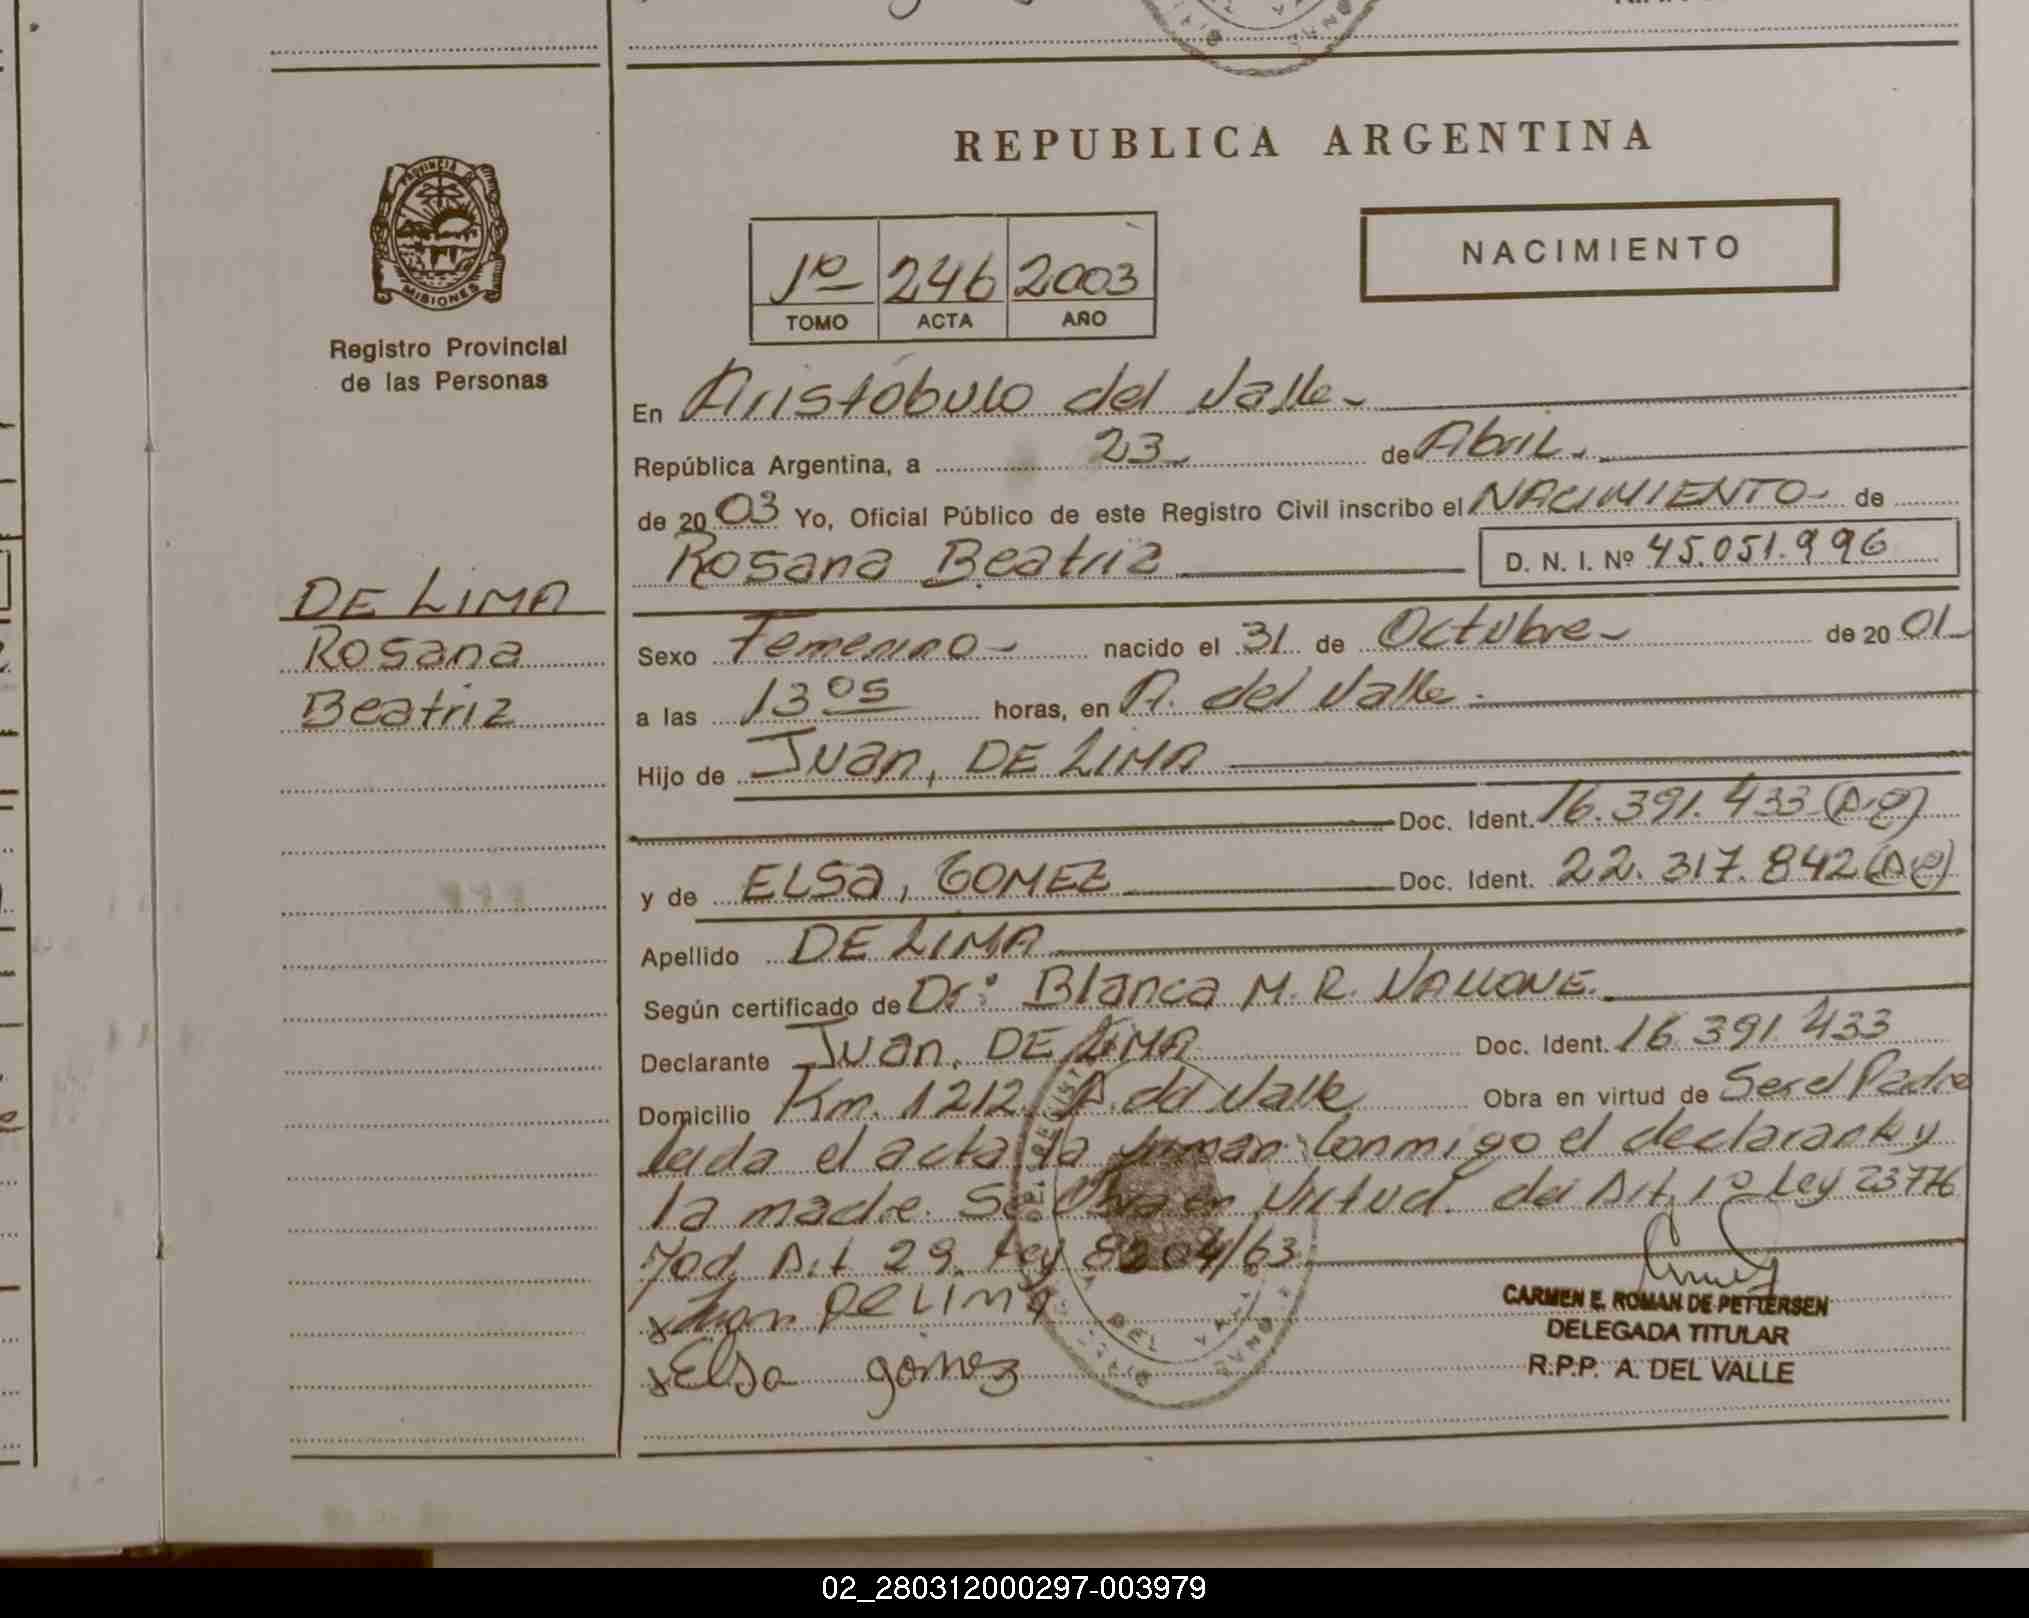 REPUBLICA ARGENTINA
PROVINCIA DE
MISIONES
Registro Provincial
de las Personas
NACIMIENTO
1º 246 2003
TOMO ACTA AÑO
En Aristóbulo del Valle-
República Argentina, a 23 de Abril.
de 2003 Yo, Oficial Público de este Registro Civil inscribo el NACIMIENTO- de
Rosana Beatriz D. N. I. Nº 45.051.996
DE LIMA
Rosana
Beatriz
Sexo Femenino- nacido el 31 de Octubre- de 2001-
a las 13 05 horas, en A. del Valle.
Hijo de Juan, DE LIMA
Doc. Ident. 16.391.433
y de ELSA, GOMEZ Doc. Ident. 22.317.842
Apellido DE LIMA
Según certificado de Drª Blanca M. R. VALLONE.
Declarante Juan, DE LIMA Doc. Ident. 16 391 433
Domicilio Km. 1212 A. del Valle Obra en virtud de Ser el Padre
leida el acta la firman conmigo el declarante y
la madre. Se Obra en Virtud del Art. 1º Ley 23776
Mod. Art 29. Ley 8204/63
x Juan DE LIMA
x Elsa gomez
DEL VALLE
CARMEN E. ROMAN DE PETTERSEN
DELEGADA TITULAR
R.P.P. A. DEL VALLE
02_280312000297-003979